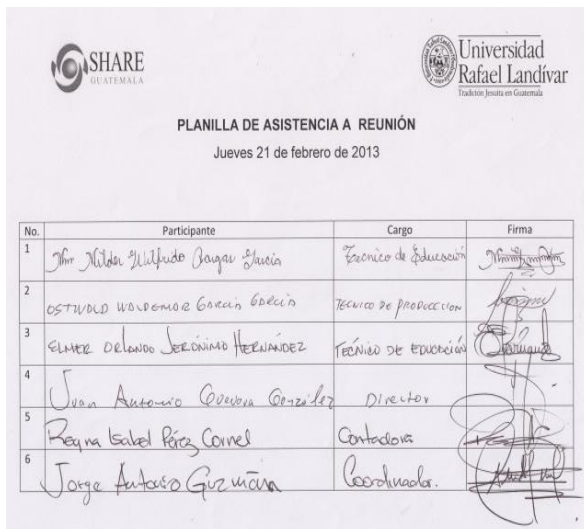 SHARE
GUATEMALA
Universidad
Rafael Landívar
Tradición Jesuita en Guatemala
PLANILLA DE ASISTENCIA A REUNIÓN
Jueves 21 de febrero de 2013
No. Participante Cargo Firma
1 Wilfrido García Técnico de Educación
2 OSTWOLD WALDEMAR GARCIA GARCIA TECNICO DE PRODUCCION
3 ELMER ORLANDO JERÓNIMO HERNÁNDEZ TECNICO DE EDUCACIÓN
4 Juan Antonio Guevara González Director
5 Reyna Isabel Pérez Cornel Contadora
6 Jorge Antonio Guzmán Coordinador.